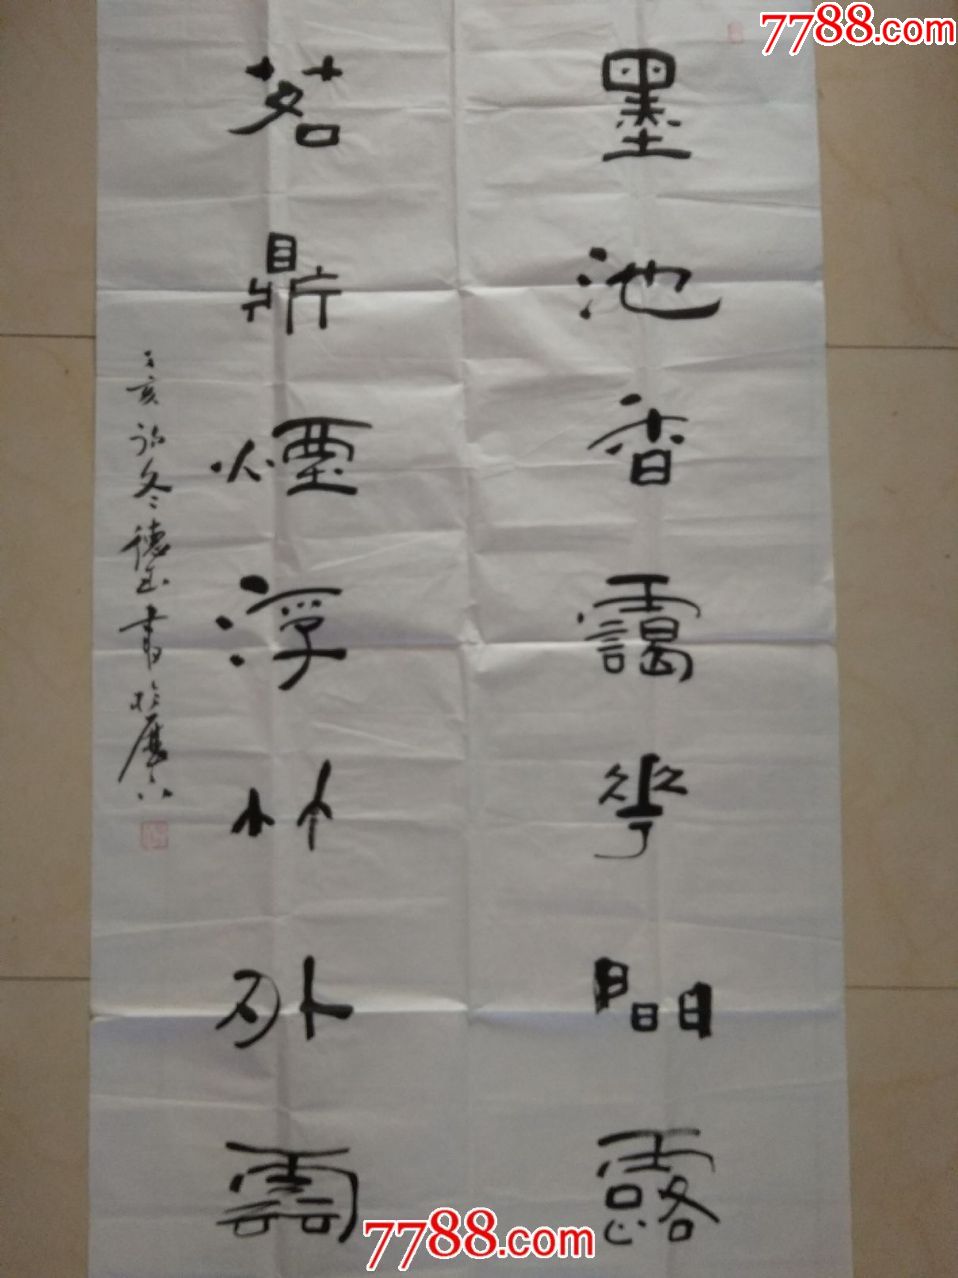 7788.com
墨池香靄花間露
茗鼎煙浮竹外雲
亥初冬德玉書於
7788.com